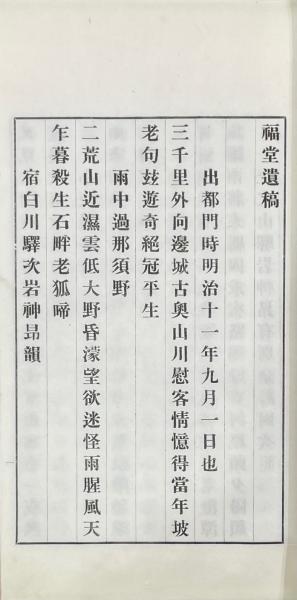 福堂遺稿
出都門時明治十一年九月一日也
三千里外向邊城古奧山川慰客情憶得當年坡
老句玆遊奇絕冠平生
雨中過那須野
二荒山近濕雲低大野昏濛望欲迷怪雨腥風天
乍暮殺生石畔老狐啼
宿白川驛次岩神昻韻